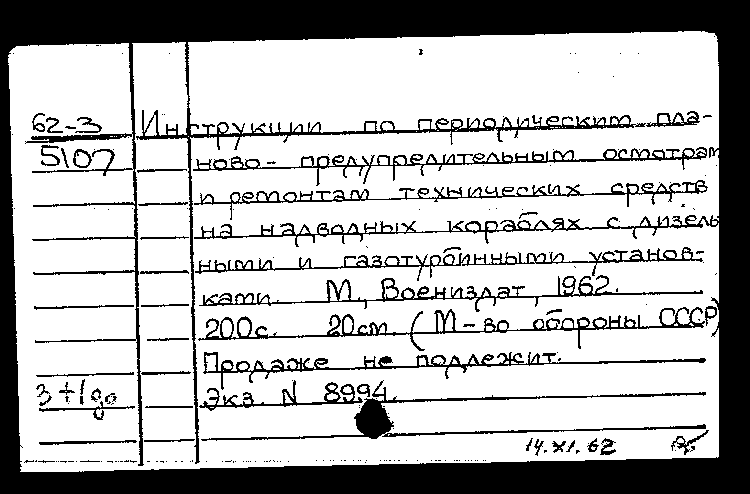 62-3 Инструкции по периодическим пла-
5107 ново-предупредительным осмотрам
и ремонтам технических средств
на надводных кораблях с дизель
ными и газотурбинными установ-
ками. М., Воениздат, 1962.
200с. 20см. (М-во обороны СССР)
Продаже не подлежит.
3+1до Экз. N 8994.
14.XI.62